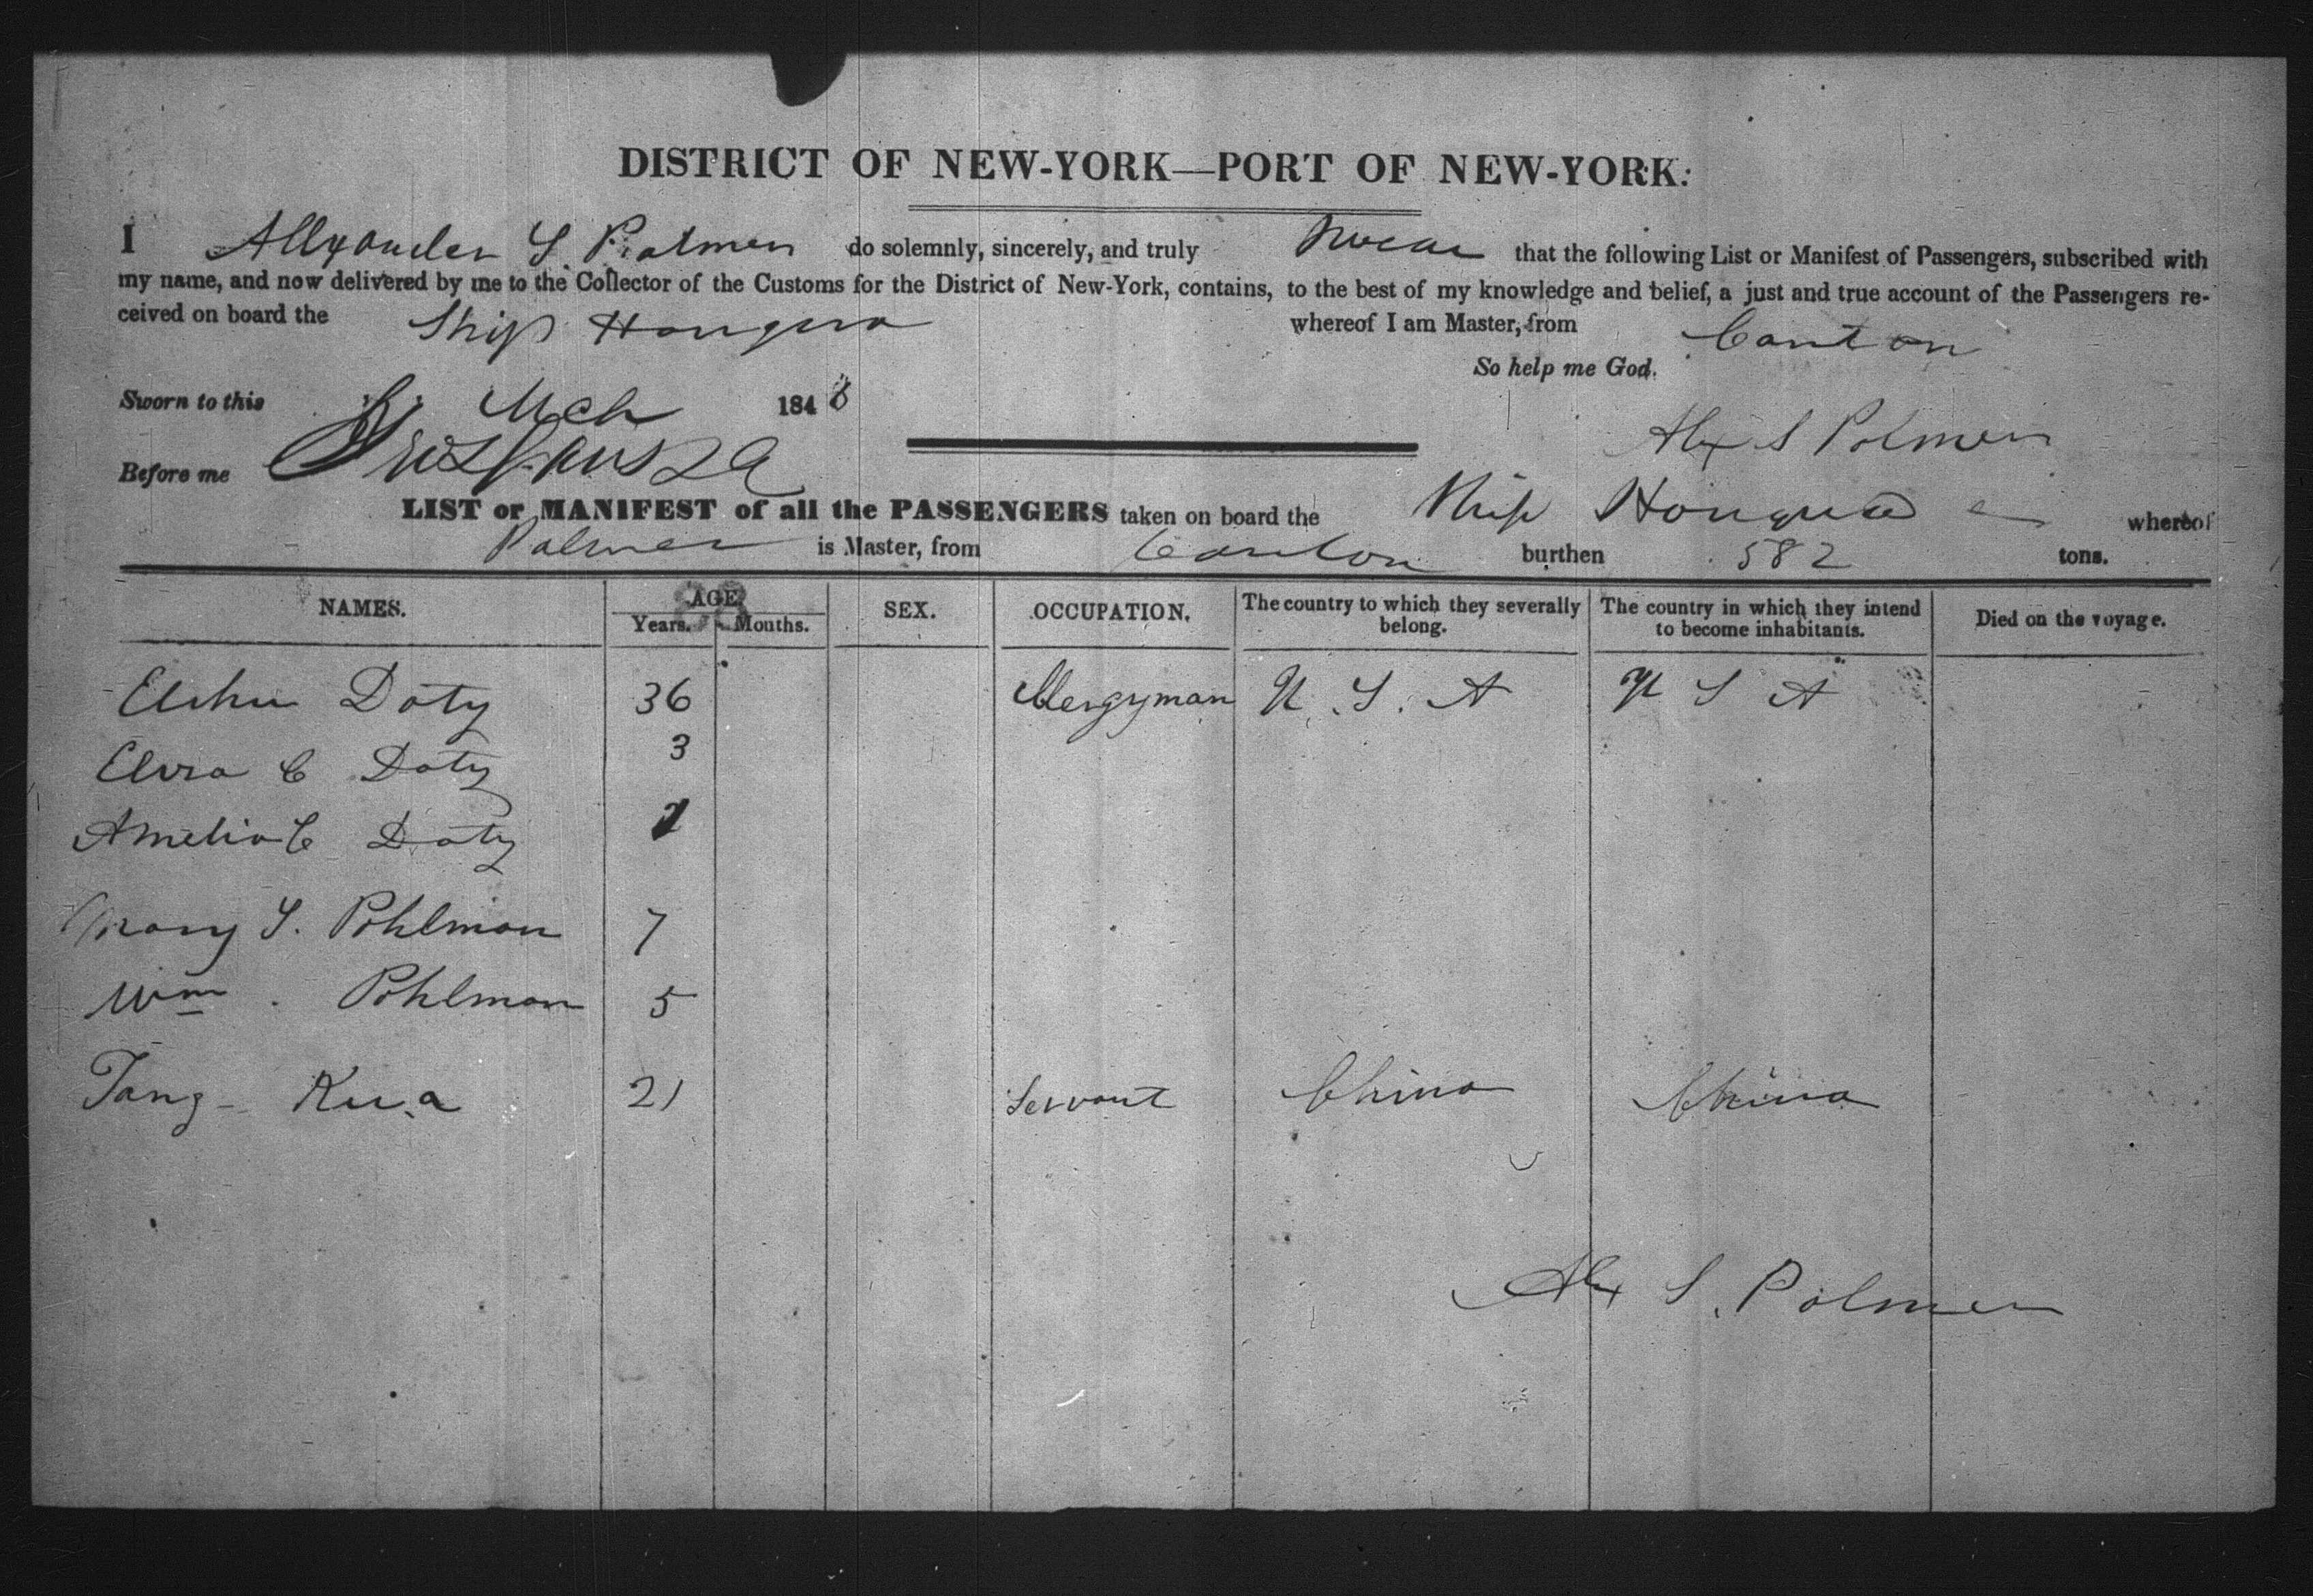 DISTRICT OF NEW-YORK—PORT OF NEW-YORK.
I Allexander S. Palmer do solemnly, sincerely, and truly swear that the following List or Manifest of Passengers, subscribed with
my name, and now delivered by me to the Collector of the Customs for the District of New-York, contains, to the best of my knowledge and belief, a just and true account of the Passengers re-
ceived on board the Ship Houqua whereof I am Master, from Canton
So help me God.
Sworn to this 8 Mch 1848
Alex S Palmer
Before me
LIST or MANIFEST of all the PASSENGERS taken on board the Ship Houqua whereof
Palmer is Master, from Canton burthen 582 tons.
NAMES. AGE. Years. Months. SEX. OCCUPATION. The country to which they severally belong. The country in which they intend to become inhabitants. Died on the voyage.
Elihu Doty 36 Clergyman U. S. A U S A
Elvira C Doty 3
Amelia C Doty
Mary S. Pohlman 7
Wm. Pohlman 5
Tang-Kua 21 Servant China China
Alex S. Palmer